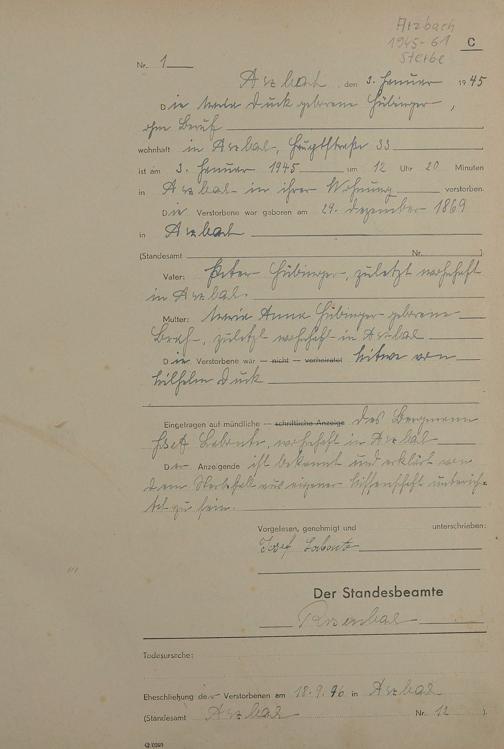 Arzbach
1945-61
Sterbe
C
Nr. 1
Arzbach, den 3. Januar 1945
Die Maria Duck geborene Hübinger,
ohne Beruf
wohnhaft in Arzbach, Hauptstraße 33
ist am 3. Januar 1945 um 12 Uhr 20 Minuten
in Arzbach in ihrer Wohnung verstorben.
Die Verstorbene war geboren am 29. Dezember 1869
in Arzbach
(Standesamt Nr. )
Vater: Peter Hübinger, zuletzt wohnhaft
in Arzbach.
Mutter: Maria Anna Hübinger geborene
zuletzt wohnhaft in Arzbach
Die Verstorbene war — nicht — verheiratet Witwe von
Wilhelm Duck
Eingetragen auf mündliche — schriftliche Anzeige des Bergmann
Josef wohnhaft in Arzbach
Der Anzeigende ist bekannt und erklärt von
dem Sterbefall aus eigener Wissenschaft unterrich-
tet zu sein.
Vorgelesen, genehmigt und unterschrieben:
Josef
Der Standesbeamte
Todesursache:
Eheschließung der Verstorbenen am 18.9.96 in Arzbach
(Standesamt Arzbach Nr. 12 ).